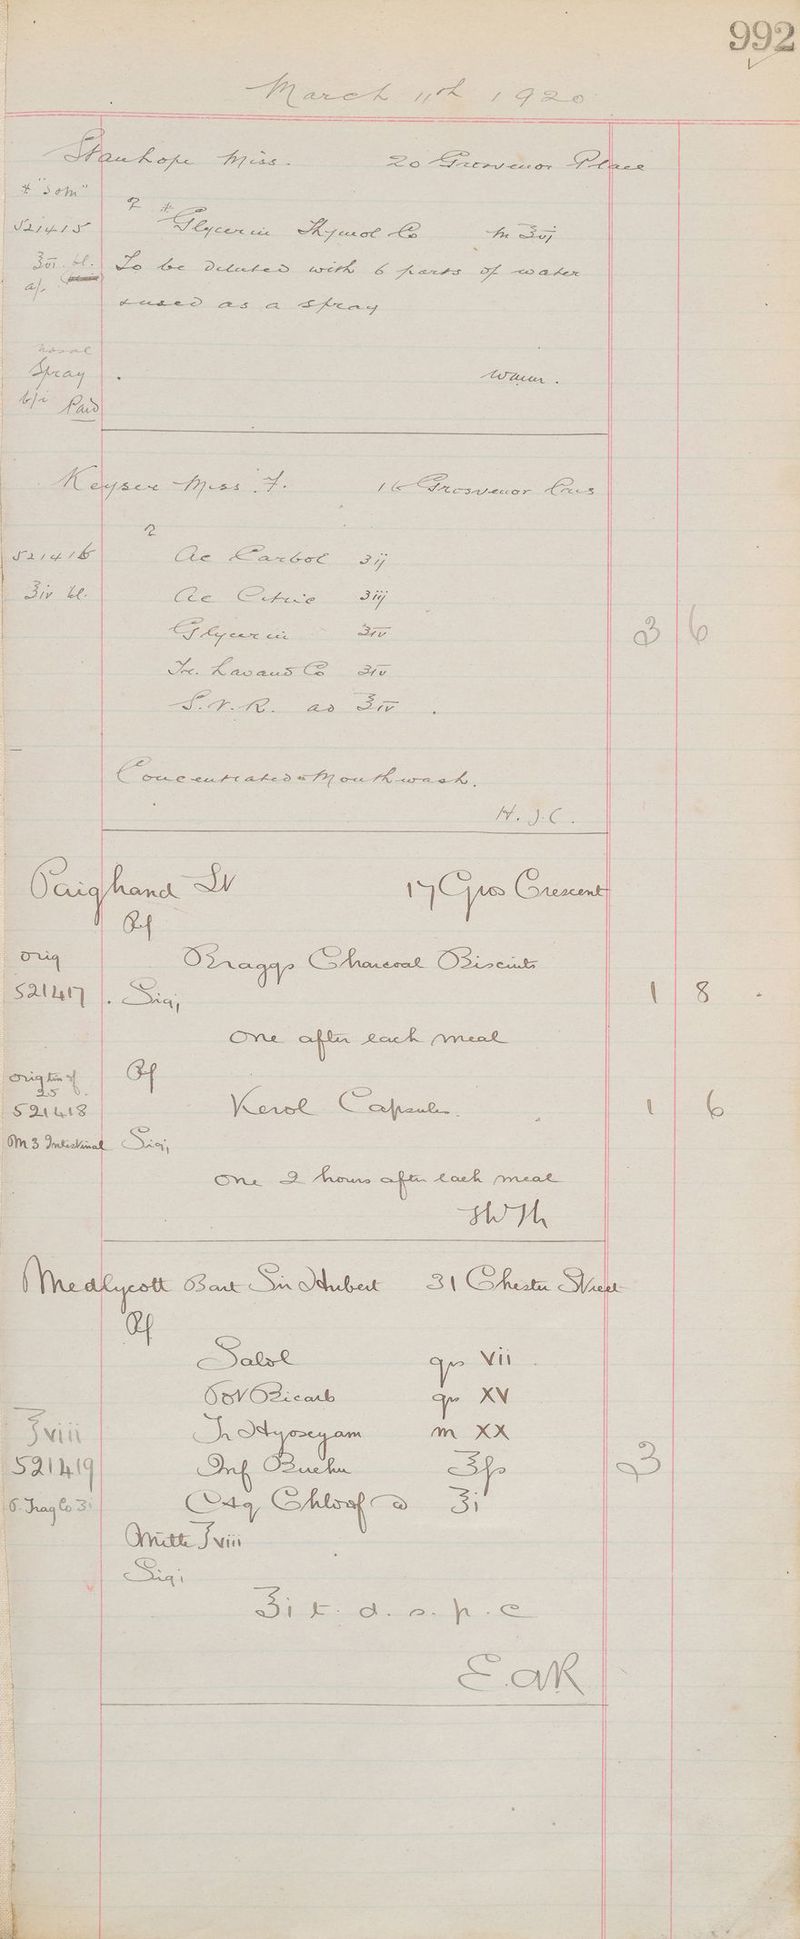 992
March 11th 1920
Stanhope Miss. 20 Grosvenor Place
* "Som"
521415 * Glycerin Thymol Co ℥vj
℥vi. bl. To be diluted with 6 parts of water
& used as a spray
nasal
Spray
Paid
Keyser Miss F. 16 Grosvenor Cres
521416 Ac Carbol ʒij
℥iv bl. Ac Citric ʒiij
Glycerin ʒiv 3 6
Tr. Lavand Co ʒiv
S.V.R. ad ℥iv
Concentrated Mouthwash.
H.J.C.
Paighand Lt 17 Gros Crescent
Rf
orig Braggs Charcoal Biscuits
521417 Sig; 1 8
One after each meal
orig tin of 25 Rf
521418 Kerol Capsules. 1 6
M3 Intestinal Sig;
One 2 hours after each meal
Medlycott Bart Sir Hubert 31 Chester Street
Rf
Salol grs vii
Pot Bicarb grs XV
℥viii Tr Hyoscyam m XX
521419 Inf Buchu ℥fs 3
P. Trag Co ʒi Aq Chlorof ad ℥i
Mitte ℥viii
Sig;
℥i t. d. s. p. c
E.A.R